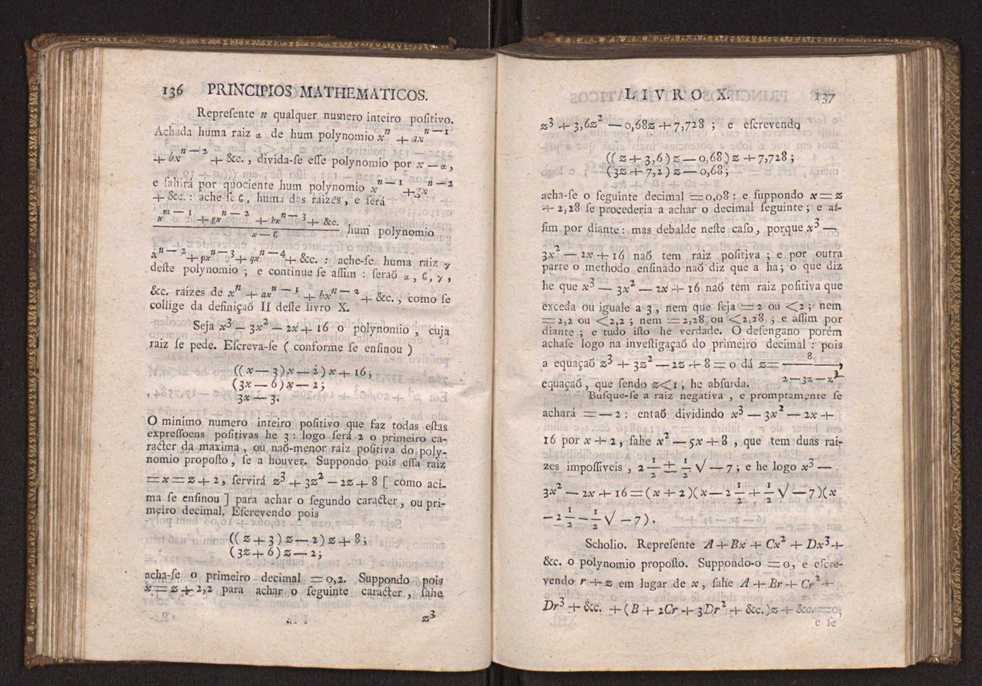 136 PRINCIPIOS MATHEMATICOS.
Repreſente n qualquer numero inteiro poſitivo.
Achada huma raiz α de hum polynomio xⁿ + axⁿ⁻¹
+ bxⁿ⁻² + &c. , divida-ſe eſſe polynomio por x — α,
e ſahirá por quociente hum polynomio xⁿ⁻¹ + fxⁿ⁻²
+ &c. : ache-ſe ϐ, huma das raizes, e ſerá
xⁿ⁻¹ + gxⁿ⁻² + hxⁿ⁻³ + &c.
x — ϐ hum polynomio
xⁿ⁻² + pxⁿ⁻³ + qxⁿ⁻⁴ + &c. : ache-ſe huma raiz γ
deſte polynomio ; e continue ſe aſſim : ſeraõ α, ϐ, γ,
&c. raizes de xⁿ + axⁿ⁻¹ + bxⁿ⁻² + &c. , como ſe
collige da definiçaõ II deſte livro X.
Seja x³ — 3x² — 2x + 16 o polynomio , cuja
raiz ſe pede. Eſcreva-ſe ( conforme ſe enſinou )
((x — 3)x — 2)x + 16;
(3x — 6)x — 2;
3x — 3.
O minimo numero inteiro poſitivo que faz todas eſtas
expreſſoens poſitivas he 3 : logo ſerá 2 o primeiro ca-
racter da maxima , ou naõ-menor raiz poſitiva do poly-
nomio propoſto, ſe a houver. Suppondo pois eſſa raiz
= x = z + 2, ſervirá z³ + 3z² — 2z + 8 [ como aci-
ma ſe enſinou ] para achar o ſegundo caracter , ou pri-
meiro decimal. Eſcrevendo pois
((z + 3)z — 2)z + 8;
(3z + 6)z — 2;
acha-ſe o primeiro decimal = 0,2. Suppondo pois
x = z + 2,2 para achar o ſeguinte caracter , ſahe
z³
LIVRO X. 137
z³ + 3,6z² — 0,68z + 7,728 ; e eſcrevendo
((z + 3,6)z — 0,68)z + 7,728;
(3z + 7,2)z — 0,68;
acha-ſe o ſeguinte decimal = 0,08 : e ſuppondo x = z
+ 2,28 ſe procederia a achar o decimal ſeguinte ; e aſ-
ſim por diante : mas debalde neſte caſo, porque x³ —
3x² — 2x + 16 naõ tem raiz poſitiva ; e por outra
parte o methodo enſinado naõ diz que a ha; o que diz
he que x³ — 3x² — 2x + 16 naõ tem raiz poſitiva que
exceda ou iguale a 3 , nem que ſeja = 2 ou < 2 ; nem
= 2,2 ou < 2,2 ; nem = 2,28 ou < 2,28 ; e aſſim por
diante ; e tudo iſſo he verdade. O deſengano porém
achaſe logo na inveſtigaçaõ do primeiro decimal : pois
a equaçaõ z³ + 3z² — 2z + 8 = 0 dá z = 8,
2 — 3z — z²
equaçaõ , que ſendo z < 1 ; he abſurda.
Buſque-ſe a raiz negativa , e promptamente ſe
achará = — 2 : entaõ dividindo x³ — 3x² — 2x +
16 por x + 2 , ſahe x² — 5x + 8 , que tem duas raí-
zes impoſſiveis , 2 ½ ± ½ √ — 7 ; e he logo x³ —
3x² — 2x + 16 = (x + 2)(x — 2 ½ + ½ √ — 7)(x
— 2 ½ — ½ √ — 7).
Scholio. Repreſente A + Bx + Cx² + Dx³ +
&c. o polynomio propoſto. Suppondo-o = 0, e eſcre-
vendo r + z em lugar de x , ſahe A + Br + Cr² +
Dr³ + &c. + (B + 2Cr + 3Dr² + &c.)z + &c. = 0;
e ſe